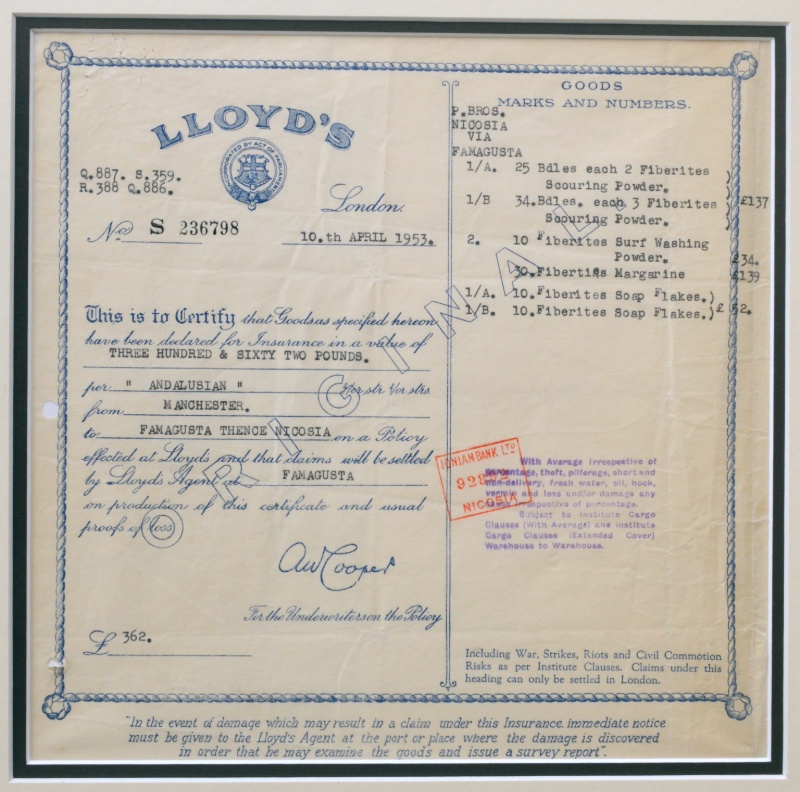 LLOYD'S
INCORPORATED BY ACT OF PARLIAMENT
Q.887. S.359.
R.388 Q.886.
London.
No. S 236798
10.th APRIL 1953.
This is to Certify that Goods as specified hereon
have been declared for Insurance in a value of
THREE HUNDRED & SIXTY TWO POUNDS.
per " ANDALUSIAN " &/or str &/or strs
from MANCHESTER.
to FAMAGUSTA THENCE NICOSIA on a Policy
effected at Lloyds and that claims will be settled
by Lloyd's Agent at FAMAGUSTA
on production of this certificate and usual
proofs of loss
AW Cooper
For the Underwriters on the Policy
£ 362.
GOODS
MARKS AND NUMBERS.
P.BROS.
NICOSIA
VIA
FAMAGUSTA
1/A. 25 Bdles each 2 Fiberites )
Scouring Powder. )
1/B 34.Bdles. each 3 Fiberites ) £137
Scouring Powder. )
2. 10 Fiberites Surf Washing
Powder. £34.
30.Fiberties Margarine £139
1/A. 10.Fiberites Soap Flakes.)
1/B. 10.Fiberites Soap Flakes.) £ 52.
ORIGINAL
IONIAN BANK LTD
NICOSIA
With Average Irrespective of
percentage, theft, pilferage, short and
non-delivery, fresh water, oil, hook,
vermin and loss and/or damage any
irrespective of percentage.
Subject to Institute Cargo
Clauses (With Average) and Institute
Cargo Clauses (Extended Cover)
Warehouse to Warehouse.
Including War, Strikes, Riots and Civil Commotion
Risks as per Institute Clauses. Claims under this
heading can only be settled in London.
"In the event of damage which may result in a claim under this Insurance. immediate notice
must be given to the Lloyd's Agent at the port or place where the damage is discovered
in order that he may examine the goods and issue a survey report".